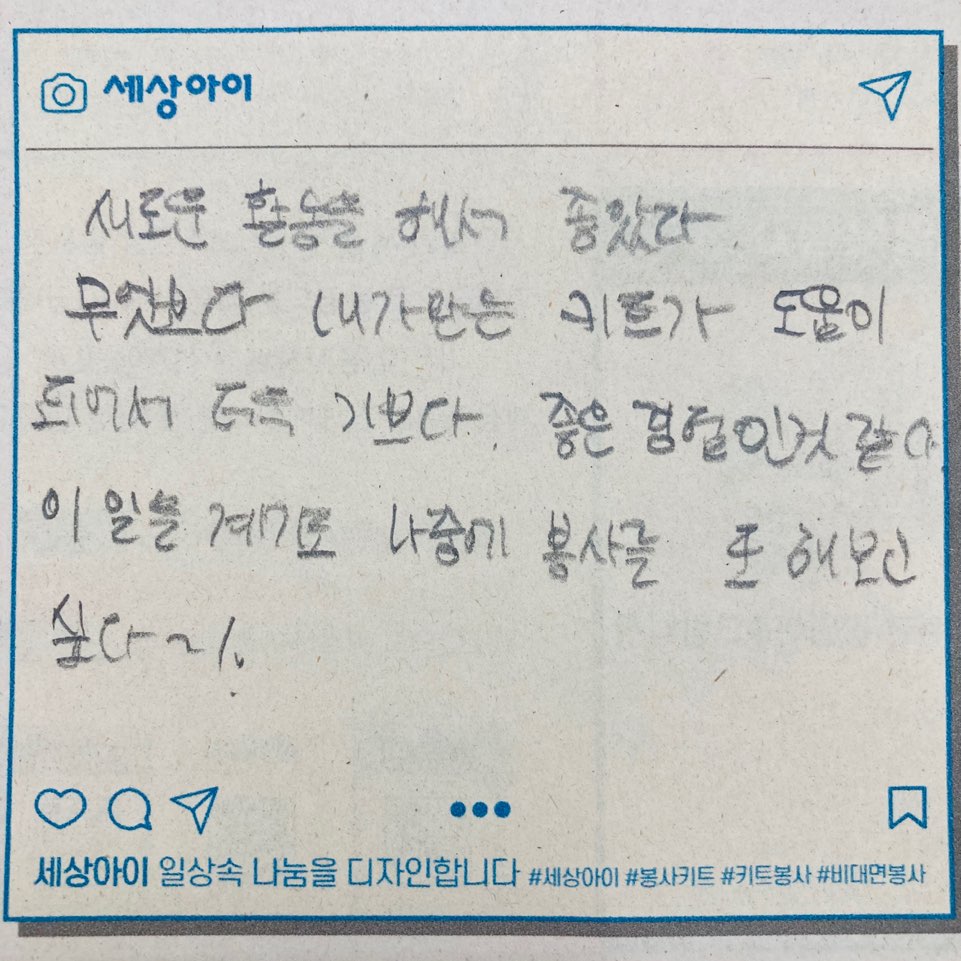 세상아이
새로운 활동을 해서 좋았다.
무엇보다 내가만든 키트가 도움이
되어서 더욱 기쁘다. 좋은 경험인것 같다
이 일을 계기로 나중에 봉사를 또 해보고
싶다~!
세상아이 일상속 나눔을 디자인합니다 #세상아이 #봉사키트 #키트봉사 #비대면봉사